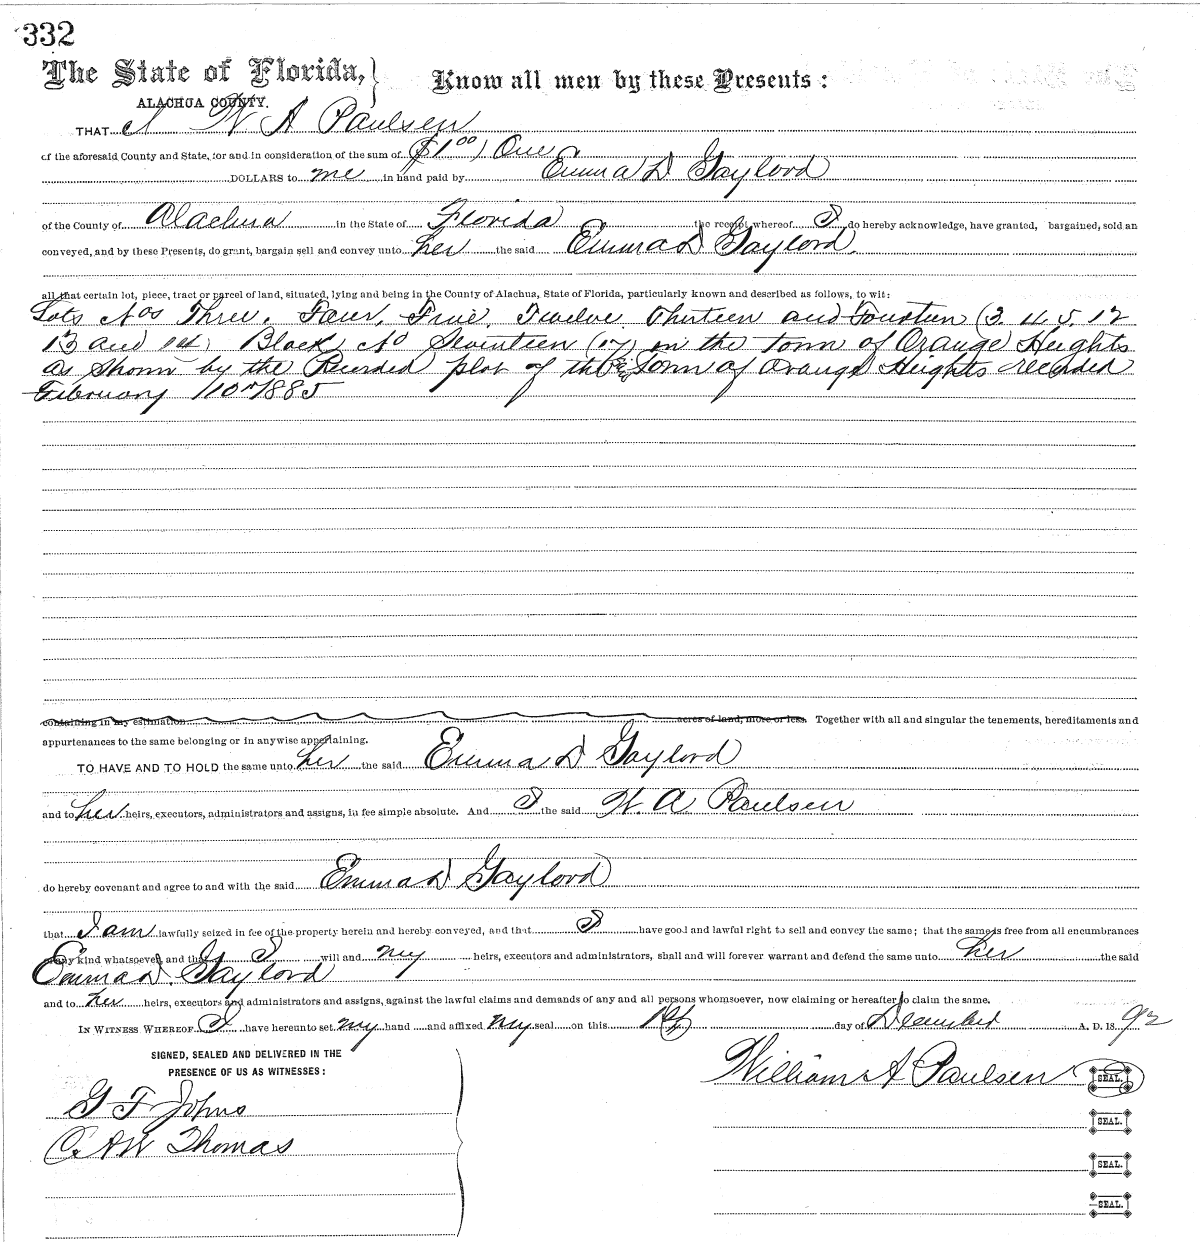 332
The State of Florida, Know all men by these Presents:
ALACHUA COUNTY.
THAT I W A Paulsen
of the aforesaid County and State, for and in consideration of the sum of ($1.00) One
DOLLARS to me in hand paid by Emma D Gaylord
of the County of Alachua in the State of Florida the receipt whereof I do hereby acknowledge, have granted, bargained, sold an
conveyed, and by these Presents, do grant, bargain sell and convey unto her the said Emma D Gaylord
all that certain lot, piece, tract or parcel of land, situated, lying and being in the County of Alachua, State of Florida, particularly known and described as follows, to wit:
Lots Nos Three, Four, Five, Twelve Thirteen and Fourteen (3. 4. 5. 12
13 and 14) Block No Seventeen (17) in the town of Orange Heights
as shown by the Recorded plot of the Town of Orange Heights recorded
February 10th 1885
containing in my estimation acres of land, more or less. Together with all and singular the tenements, hereditaments and
appurtenances to the same belonging or in anywise appertaining.
TO HAVE AND TO HOLD the same unto her the said Emma D Gaylord
and to her heirs, executors, administrators and assigns, in fee simple absolute. And I the said W. A Paulsen
do hereby covenant and agree to and with the said Emma D Gaylord
that I am lawfully seized in fee of the property herein and hereby conveyed, and that I have good and lawful right to sell and convey the same; that the same is free from all encumbrances
of any kind whatsoever, and that I will and my heirs, executors and administrators, shall and will forever warrant and defend the same unto her the said
Emma D. Gaylord
and to her heirs, executors and administrators and assigns, against the lawful claims and demands of any and all persons whomsoever, now claiming or hereafter to claim the same.
IN WITNESS WHEREOF I have hereunto set my hand and affixed my seal on this day of December A. D. 1892
SIGNED, SEALED AND DELIVERED IN THE
PRESENCE OF US AS WITNESSES:
William A Paulsen SEAL.
G T Johns
SEAL.
C. AW Thomas
SEAL.
SEAL.